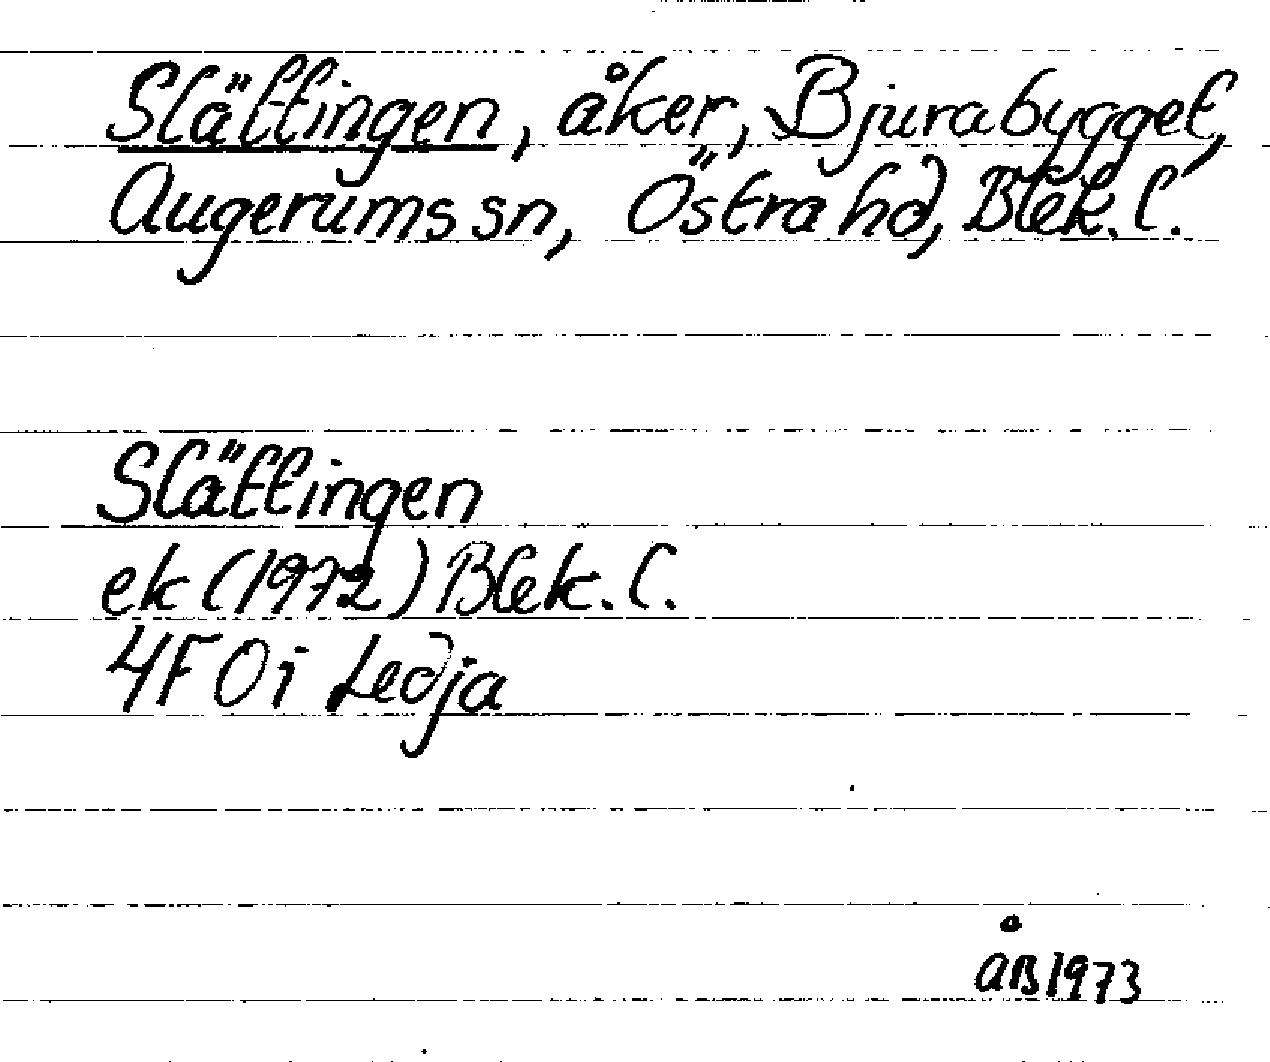 Slättingen, åker, Bjurabygget,
Augerums sn, Östra hd, Blek. l.
Slättingen
ek (1972) Blek. l.
4F 0i Ledja
ÅB 1973